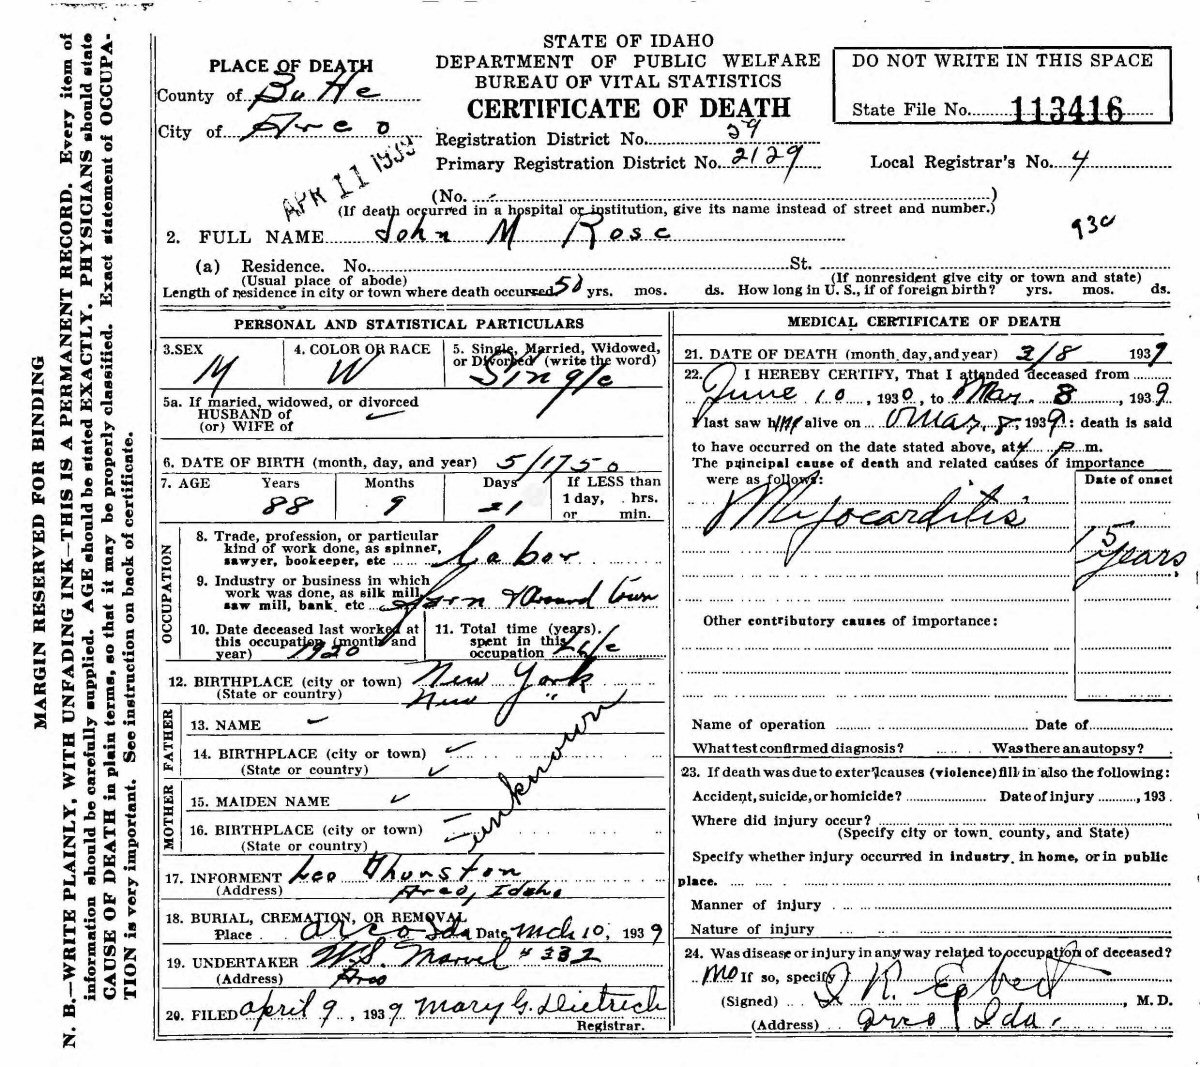 STATE OF IDAHO
DEPARTMENT OF PUBLIC WELFARE
BUREAU OF VITAL STATISTICS
CERTIFICATE OF DEATH
PLACE OF DEATH
County of Butte
City of Arco
DO NOT WRITE IN THIS SPACE
State File No. 113416
Registration District No. 29
Primary Registration District No. 2129
Local Registrar's No. 4
APR 11 1939
(No. )
(If death occurred in a hospital or institution, give its name instead of street and number.)
2. FULL NAME John M Rose
930
(a) Residence. No. St.
(Usual place of abode) (If nonresident give city or town and state)
Length of residence in city or town where death occurred 50 yrs. mos. ds. How long in U. S., if of foreign birth? yrs. mos. ds.
PERSONAL AND STATISTICAL PARTICULARS
3. SEX M
4. COLOR OR RACE W
5. Single, Married, Widowed, or Divorced (write the word) Single
5a. If married, widowed, or divorced
HUSBAND of
(or) WIFE of
6. DATE OF BIRTH (month, day, and year) 5/17 50
7. AGE Years Months Days If LESS than
88 9 21 1 day, hrs.
or min.
OCCUPATION
8. Trade, profession, or particular
kind of work done, as spinner,
sawyer, bookeeper, etc Labor
9. Industry or business in which
work was done, as silk mill,
saw mill, bank, etc Farm & Around town
10. Date deceased last worked at
this occupation (month and
year) 1920
11. Total time (years)
spent in this
occupation Life
12. BIRTHPLACE (city or town) New York
(State or country) New "
FATHER
13. NAME
14. BIRTHPLACE (city or town)
(State or country)
MOTHER
15. MAIDEN NAME
16. BIRTHPLACE (city or town)
(State or country)
unknown
17. INFORMENT Leo Thurston
(Address) Arco, Idaho
18. BURIAL, CREMATION, OR REMOVAL
Place Arco Ida Date Mch 10, 1939
19. UNDERTAKER W.S. Marvel # 332
(Address) Arco
20. FILED April 9, 1939 Mary G. Dietrich
Registrar.
MEDICAL CERTIFICATE OF DEATH
21. DATE OF DEATH (month, day, and year) 3/8 1939
22. I HEREBY CERTIFY, That I attended deceased from
June 10, 1930, to Mar. 8, 1939
I last saw him alive on Mar. 8, 1939: death is said
to have occurred on the date stated above, at 4 P m.
The principal cause of death and related causes of importance
were as follows:
Date of onset
Myocarditis
15 years
Other contributory causes of importance:
Name of operation Date of
What test confirmed diagnosis? Was there an autopsy?
23. If death was due to exter'l causes (violence) fill in also the following:
Accident, suicide, or homicide? Date of injury , 193
Where did injury occur?
(Specify city or town, county, and State)
Specify whether injury occurred in industry, in home, or in public
place.
Manner of injury
Nature of injury
24. Was disease or injury in any way related to occupation of deceased?
No If so, specify
(Signed) Egbert, M. D.
(Address) Arco Ida.
MARGIN RESERVED FOR BINDING
N. B.—WRITE PLAINLY, WITH UNFADING INK—THIS IS A PERMANENT RECORD. Every item of
information should be carefully supplied. AGE should be stated EXACTLY. PHYSICIANS should state
CAUSE OF DEATH in plain terms, so that it may be properly classified. Exact statement of OCCUPA-
TION is very important. See instruction on back of certificate.